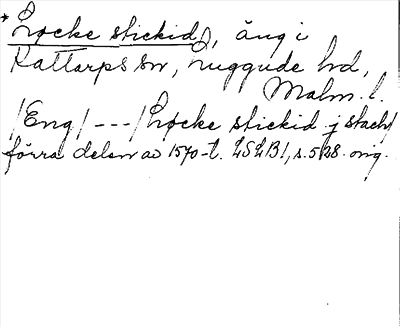 * Løcke stickid), äng i
Kattarps sn, Luggude hd,
Malm. l.
/Eng/ --- / Løcke stickid j stach/
förra delen av 1570-t. LSLB1, s. 538. orig.